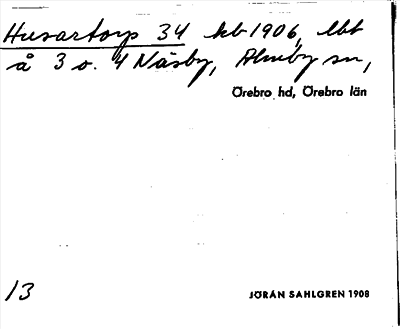 Husartorp 34 kb 1906, lbt
å 3 o. 4 Näsby, Almby sn,
Örebro hd, Örebro län
13
JÖRAN SAHLGREN 1908